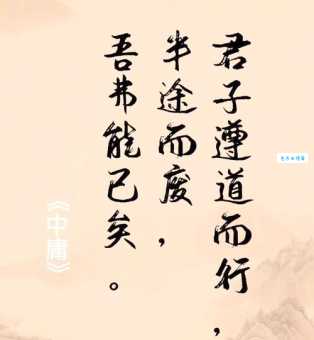 君子遵道而行，
半途而废，
吾弗能已矣。
《中庸》